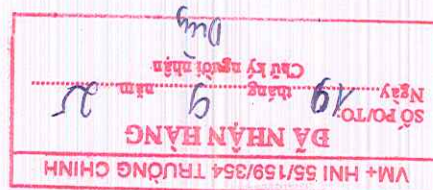 VM+ HNI 55/159/354 TRƯỜNG CHINH
ĐÃ NHẬN HÀNG
SỐ PO/TO:
Ngày 19 tháng 9 năm 25
Chữ ký người nhận
Duy